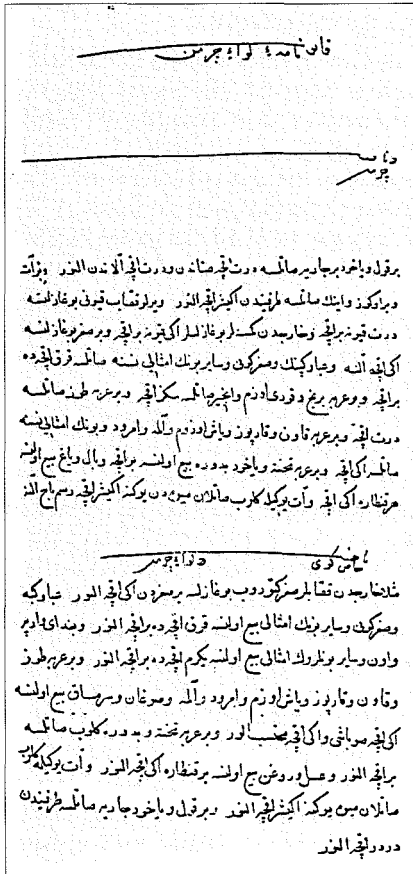 قانوننامهٔ لواء چرمن
در نفس
چرمن
بر قول و یاخود بر جاریه صاتلسه درت اقچه صاتندن و درت اقچه آلاندن النور و بر آت
و بر اوکوز و اینک صاتلسه طرفیندن ایکیشر اقچه النور و یرلو قصاب قیونی بوغازلسه
درت قیونه بر اقچه و خارجدن کسنه لر بوغازلسلر ایکی قیونه بر اقچه و بر صغر بوغازلسه
ایکی اقچه آلنه و عبا و کپنک و صغر کونی و سایر بونک امثالی نسنه صاتلسه قرق اقچه ده
بر اقچه و بر عربه برنج و قوری اوزم و انجیر صاتلسه سکز اقچه و بر عربه طوز صاتلسه
درت اقچه و بر عربه قاون و قارپوز و یاش اوزم و آلما و امرود و بونک امثالی نسنه
صاتلسه ایکی اقچه و بر عربه تخته و یاخود پدوره بیع اولنسه بر اقچه و بال و یاغ بیع اولنسه
هر قنطاره ایکی اقچه و آت یوکیله کلوب صاتلان میوه دن یوکنه ایکیشر اقچه رسم باج آلنه
خاص کوی در لواء چرمن
مثلا خارجدن قصابلر صغر کتوروب بوغازلسه بر صغردن ایکی اقچه النور عبا و کبه
و صغر کونی و سایر بونک امثالی بیع اولنسه قرق اقچه ده بر اقچه النور و بغدای و ارپه
و اون و سایر بونلروک امثالی بیع اولنسه یکرمی اقچه ده بر اقچه النور و بر عربه طوز
و قاون و قارپوز و یاش اوزم و امرود و آلما و صوغان و سرمساق بیع اولنسه
ایکی اقچه صوباشی و ایکی اقچه محتسب الور و بر عربه تخته و پدوره کلوب صاتلسه
بر اقچه النور و عسل و روغن بیع اولنسه بر قنطاره ایکی اقچه النور و آت یوکیله کلوب
صاتلان میوه یوکنه ایکیشر اقچه النور و بر قول و یاخود جاریه صاتلسه طرفیندن
دردر اقچه النور